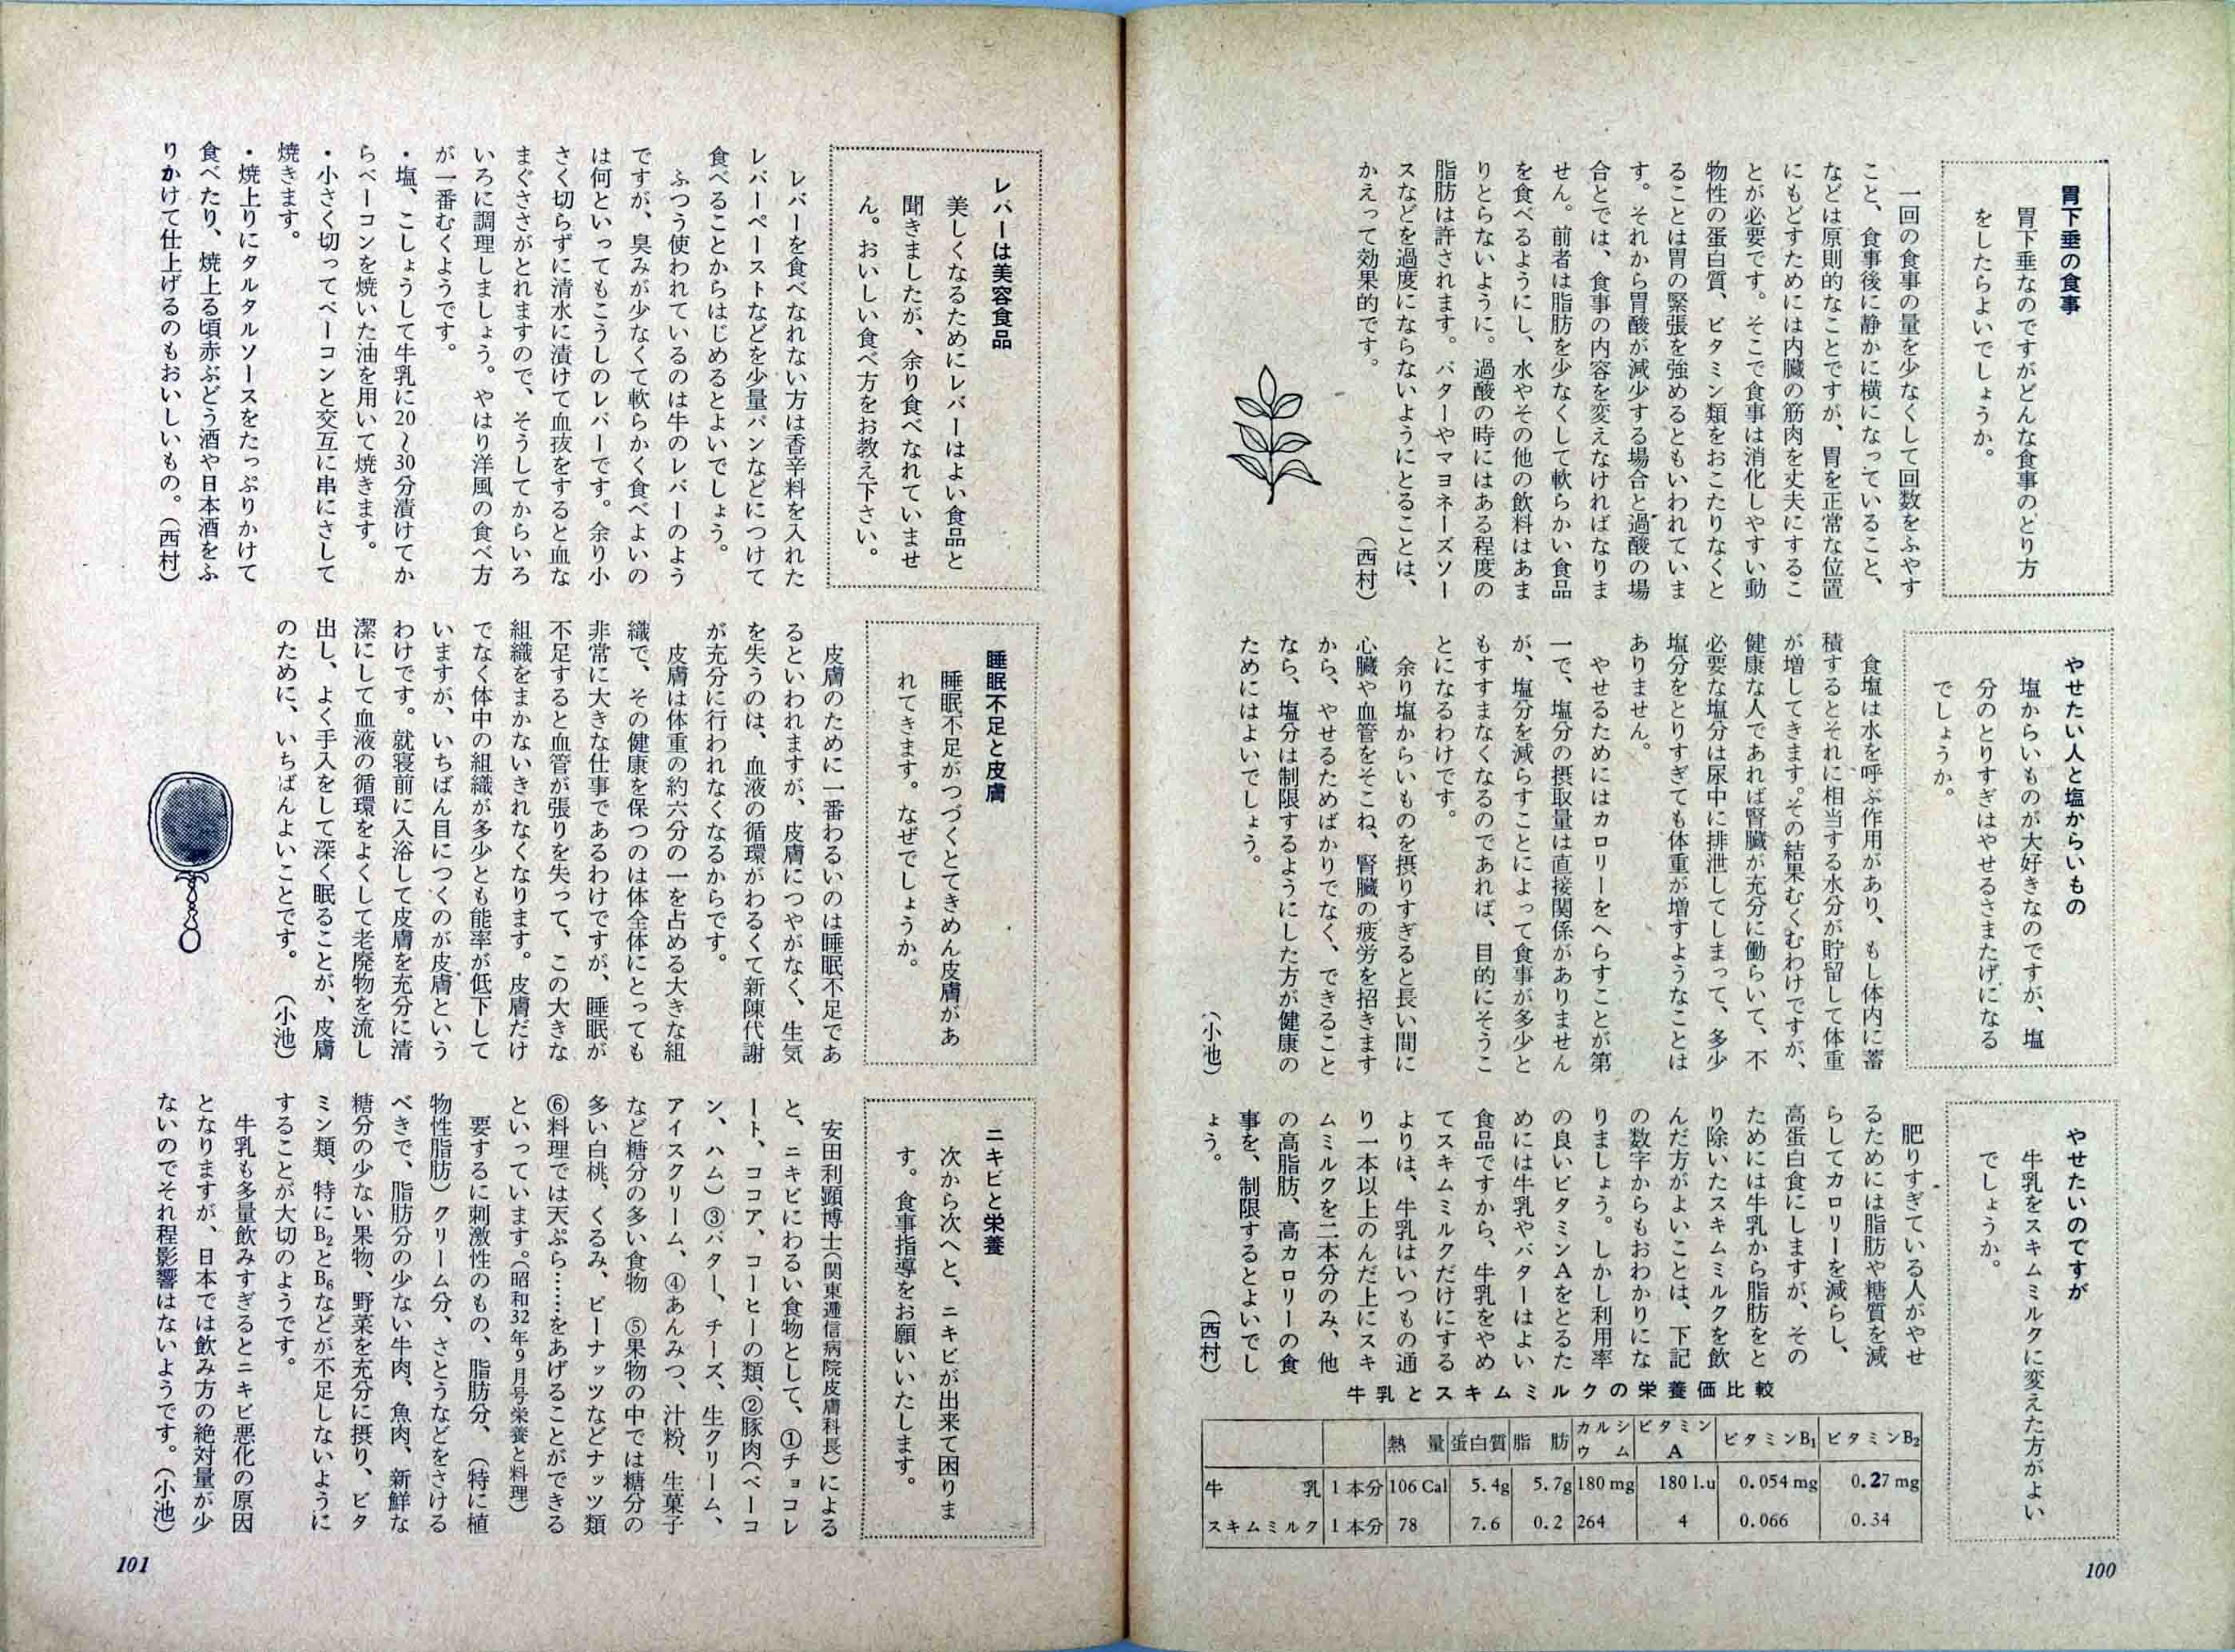 胃下垂の食事
胃下垂なのですがどんな食事のとり方
をしたらよいでしょうか。
一回の食事の量を少なくして回数をふやす
こと、食事後に静かに横になっていること、
などは原則的なことですが、胃を正常な位置
にもどすためには内臓の筋肉を丈夫にするこ
とが必要です。そこで食事は消化しやすい動
物性の蛋白質、ビタミン類をおこたりなくと
ることは胃の緊張を強めるともいわれていま
す。それから胃酸が減少する場合と過酸の場
合とでは、食事の内容を変えなければなりま
せん。前者は脂肪を少なくして軟らかい食品
を食べるようにし、水やその他の飲料はあま
りとらないように。過酸の時にはある程度の
脂肪は許されます。バターやマヨネーズソー
スなどを過度にならないようにとることは、
かえって効果的です。
（西村）
やせたい人と塩からいもの
塩からいものが大好きなのですが、塩
分のとりすぎはやせるさまたげになる
でしょうか。
食塩は水を呼ぶ作用があり、もし体内に蓄
積するとそれに相当する水分が貯留して体重
が増してきます。その結果むくむわけですが、
健康な人であれば腎臓が充分に働らいて、不
必要な塩分は尿中に排泄してしまって、多少
塩分をとりすぎても体重が増すようなことは
ありません。
やせるためにはカロリーをへらすことが第
一で、塩分の摂取量は直接関係がありません
が、塩分を減らすことによって食事が多少と
もすすまなくなるのであれば、目的にそうこ
とになるわけです。
余り塩からいものを摂りすぎると長い間に
心臓や血管をそこね、腎臓の疲労を招きます
から、やせるためばかりでなく、できること
なら、塩分は制限するようにした方が健康の
ためにはよいでしょう。
（小池）
やせたいのですが
牛乳をスキムミルクに変えた方がよい
でしょうか。
肥りすぎている人がやせ
るためには脂肪や糖質を減
らしてカロリーを減らし、
高蛋白食にしますが、その
ためには牛乳から脂肪をと
り除いたスキムミルクを飲
んだ方がよいことは、下記
の数字からもおわかりにな
りましょう。しかし利用率
の良いビタミンAをとるた
めには牛乳やバターはよい
食品ですから、牛乳をやめ
てスキムミルクだけにする
よりは、牛乳はいつもの通
り一本以上のんだ上にスキ
ムミルクを二本分のみ、他
の高脂肪、高カロリーの食
事を、制限するとよいでし
ょう。
（西村）
牛乳とスキムミルクの栄養価比較
熱量 蛋白質 脂肪 カルシウム ビタミンA ビタミンB₁ ビタミンB₂
牛乳 1本分 106 Cal 5.4g 5.7g 180 mg 180 I.u 0.054 mg 0.27 mg
スキムミルク 1本分 78 7.6 0.2 264 4 0.066 0.34
100
レバーは美容食品
美しくなるためにレバーはよい食品と
聞きましたが、余り食べなれていませ
ん。おいしい食べ方をお教え下さい。
レバーを食べなれない方は香辛料を入れた
レバーペーストなどを少量パンなどにつけて
食べることからはじめるとよいでしょう。
ふつう使われているのは牛のレバーのよう
ですが、臭みが少なくて軟らかく食べよいの
は何といってもこうしのレバーです。余り小
さく切らずに清水に漬けて血抜をすると血な
まぐささがとれますので、そうしてからいろ
いろに調理しましょう。やはり洋風の食べ方
が一番むくようです。
・塩、こしょうして牛乳に20～30分漬けてか
らベーコンを焼いた油を用いて焼きます。
・小さく切ってベーコンと交互に串にさして
焼きます。
・焼上りにタルタルソースをたっぷりかけて
食べたり、焼上る頃赤ぶどう酒や日本酒をふ
りかけて仕上げるのもおいしいもの。（西村）
睡眠不足と皮膚
睡眠不足がつづくとてきめん皮膚があ
れてきます。なぜでしょうか。
皮膚のために一番わるいのは睡眠不足であ
るといわれますが、皮膚につやがなく、生気
を失うのは、血液の循環がわるくて新陳代謝
が充分に行われなくなるからです。
皮膚は体重の約六分の一を占める大きな組
織で、その健康を保つのは体全体にとっても
非常に大きな仕事であるわけですが、睡眠が
不足すると血管が張りを失って、この大きな
組織をまかないきれなくなります。皮膚だけ
でなく体中の組織が多少とも能率が低下して
いますが、いちばん目につくのが皮膚という
わけです。就寝前に入浴して皮膚を充分に清
潔にして血液の循環をよくして老廃物を流し
出し、よく手入をして深く眠ることが、皮膚
のために、いちばんよいことです。（小池）
ニキビと栄養
次から次へと、ニキビが出来て困りま
す。食事指導をお願いいたします。
安田利顕博士（関東逓信病院皮膚科長）による
と、ニキビにわるい食物として、①チョコレ
ート、ココア、コーヒーの類、②豚肉（ベーコ
ン、ハム）③バター、チーズ、生クリーム、
アイスクリーム、④あんみつ、汁粉、生菓子
など糖分の多い食物　⑤果物の中では糖分の
多い白桃、くるみ、ピーナッツなどナッツ類
⑥料理では天ぷら……をあげることができる
といっています。（昭和32年9月号栄養と料理）
要するに刺激性のもの、脂肪分、（特に植
物性脂肪）クリーム分、さとうなどをさける
べきで、脂肪分の少ない牛肉、魚肉、新鮮な
糖分の少ない果物、野菜を充分に摂り、ビタ
ミン類、特にB₂とB₆などが不足しないように
することが大切のようです。
牛乳も多量飲みすぎるとニキビ悪化の原因
となりますが、日本では飲み方の絶対量が少
ないのでそれ程影響はないようです。（小池）
101